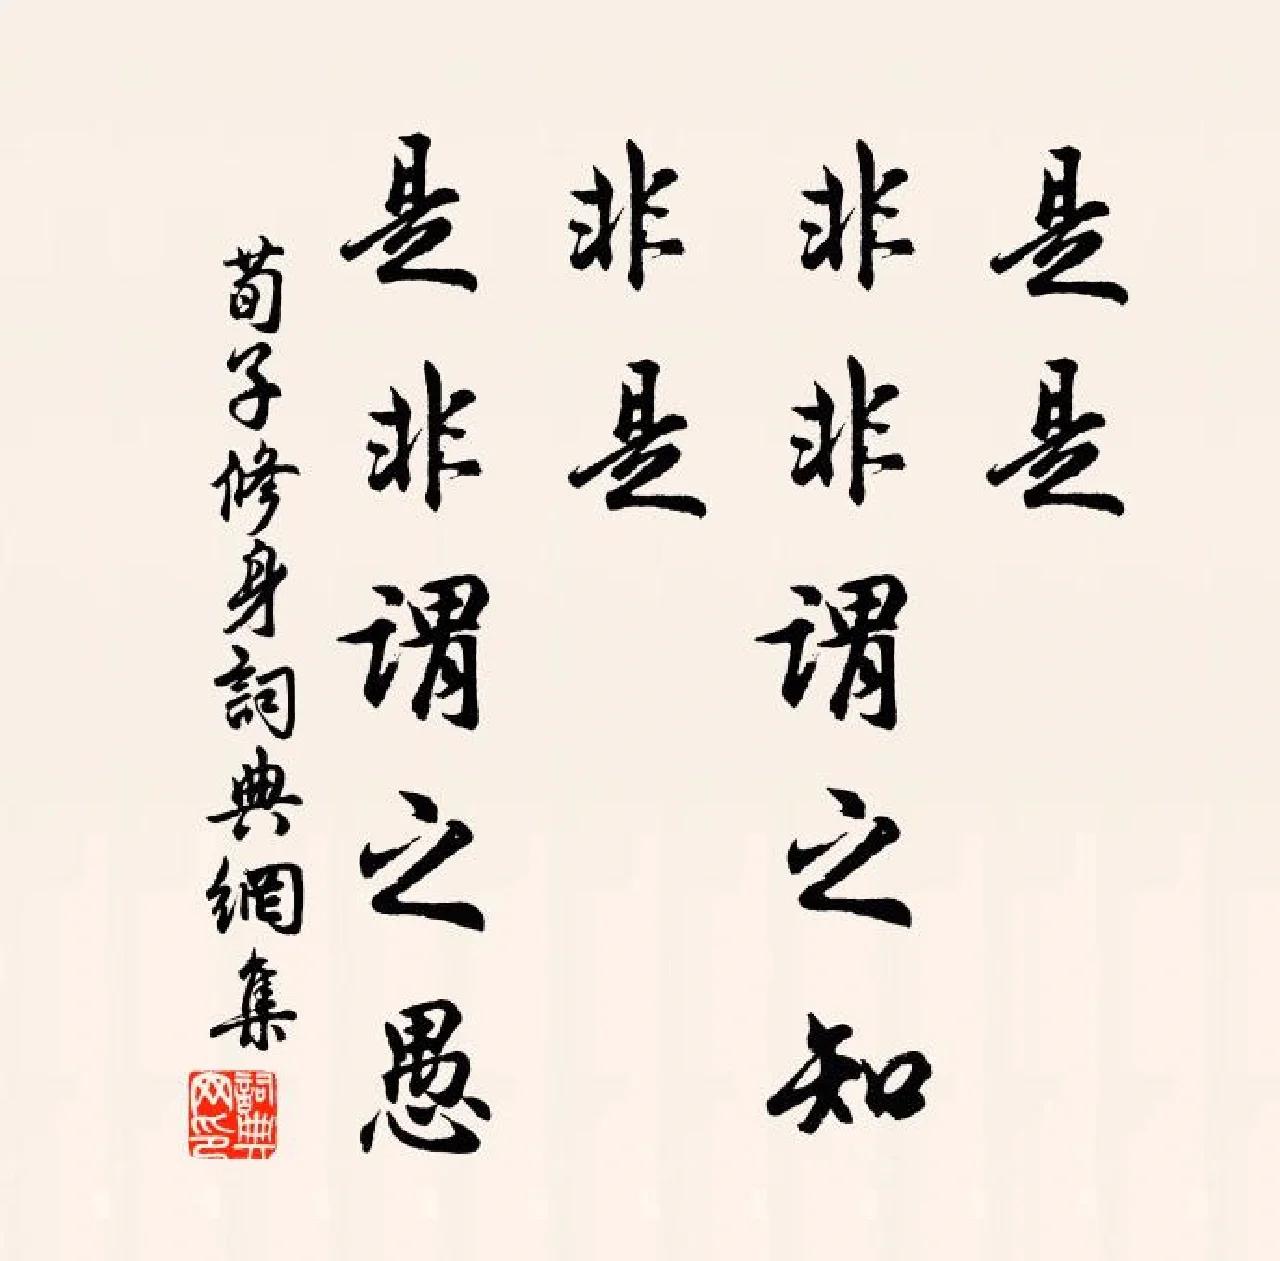 是是
非非謂之知
非是
是非謂之愚
荀子修身詞典網集
詞典
网印